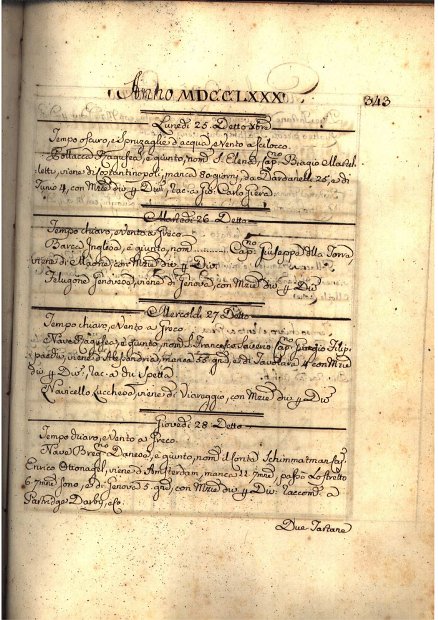 Anno MDCCLXXX 343
Lunedì 25 Detto
Tempo oscuro, e Spruzaglie d'acqua, e Vento a Scilocco.
Pollacca Ragusea, è giunto, nom.ª S. Elena, Cap.no Biagio
viene di Costantinopoli, manca 80 giorni, da Dardanelli 25, e di
4, con Mzie div. p Div. rac. a Gio. Carlo
Martedì 26 Detto
Tempo chiaro, e Vento a Greco.
Barca Inglese, è giunto, nom. ......... Cap.no Giuseppe Della Torre,
viene di con Mzie div. p Div.
Felugone Genovese, viene di Genova, con Mzie div. p Div.
Mercoldì 27 Detto
Tempo chiaro, e Vento a Greco.
Nave Ragusea, è giunto, nom. S. Francesco Cap.no Giorgio
viene d'Alesandria, manca 55 gni, e di 4 con Mzie
div. p Div. rac. a chi Spetta
Navicello Lucchese, viene di Viareggio, con Mzie div. p Div.
Giovedì 28 Detto
Tempo chiaro, e Vento a Greco.
Nave Danese, è giunto, nom. Cap.
Enrico viene d'Amsterdam, manca 11 7mne, passò Lo stretto
6 7mne sono, e di Genova 5 gni, con Mzie div. p Div. raccom. a
Partridge Darby, e Co.
Due Tartane